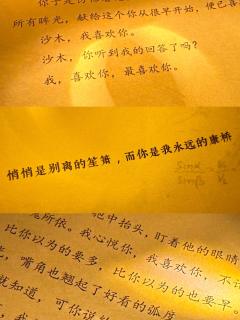 所有眸光,献给这个你从很早开始,便已喜
沙木,我喜欢你。
沙木,你听到我的回答了吗?
我,喜欢你,最喜欢你。
悄悄是别离的笙箫,而你是我永远的康桥
sinα
sinβ
中抬头,盯着他的眼睛
我心悦你,我喜欢你,不
比你以为的要多,比你以为的也要早。
嘴角也翘起了好看的弧度
就知道,可你说的